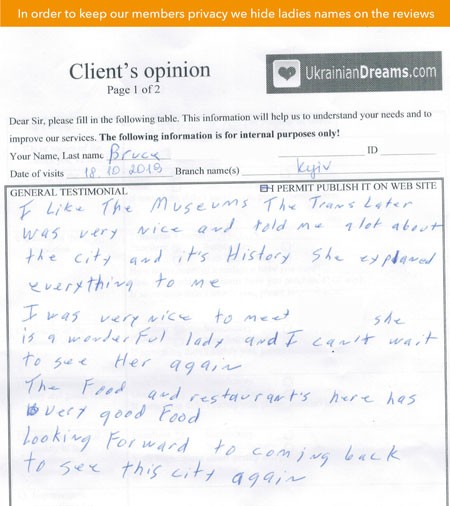 In order to keep our members privacy we hide ladies names on the reviews
Client's opinion
Page 1 of 2
UkrainianDreams.com
Dear Sir, please fill in the following table. This information will help us to understand your needs and to
improve our services. The following information is for internal purposes only!
Your Name, Last name Bruce ID
Date of visits 18.10.2019 Branch name(s) Kyiv
GENERAL TESTIMONIAL I PERMIT PUBLISH IT ON WEB SITE
I Like The Museums The Translater
was very nice and told me alot about
the city and it's History she explaned
everything to me
I was very nice to meet she
is a wonderful lady and I can't wait
to see Her again
The Food and restaurant's here has
very good Food
Looking Forward to coming back
to see this city again